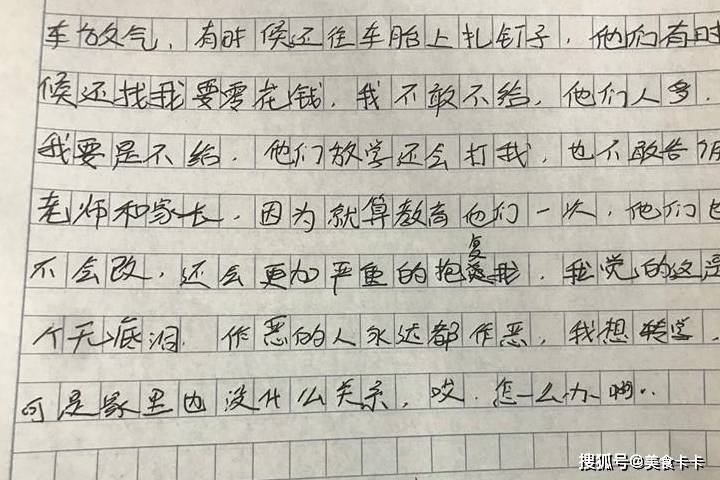 车放气，有时候还往车胎上扎钉子，他们有时
候还找我要零花钱，我不敢不给，他们人多，
我要是不给，他们放学还会打我，也不敢告
老师和家长，因为就算教育他们一次，他们也
不会改，还会更加严重的抱复我，我觉的这是
个无底洞，作恶的人永远都作恶，我想转学，
可是家里也没什么关系，哎，怎么办啊..
搜狐号@美食卡卡